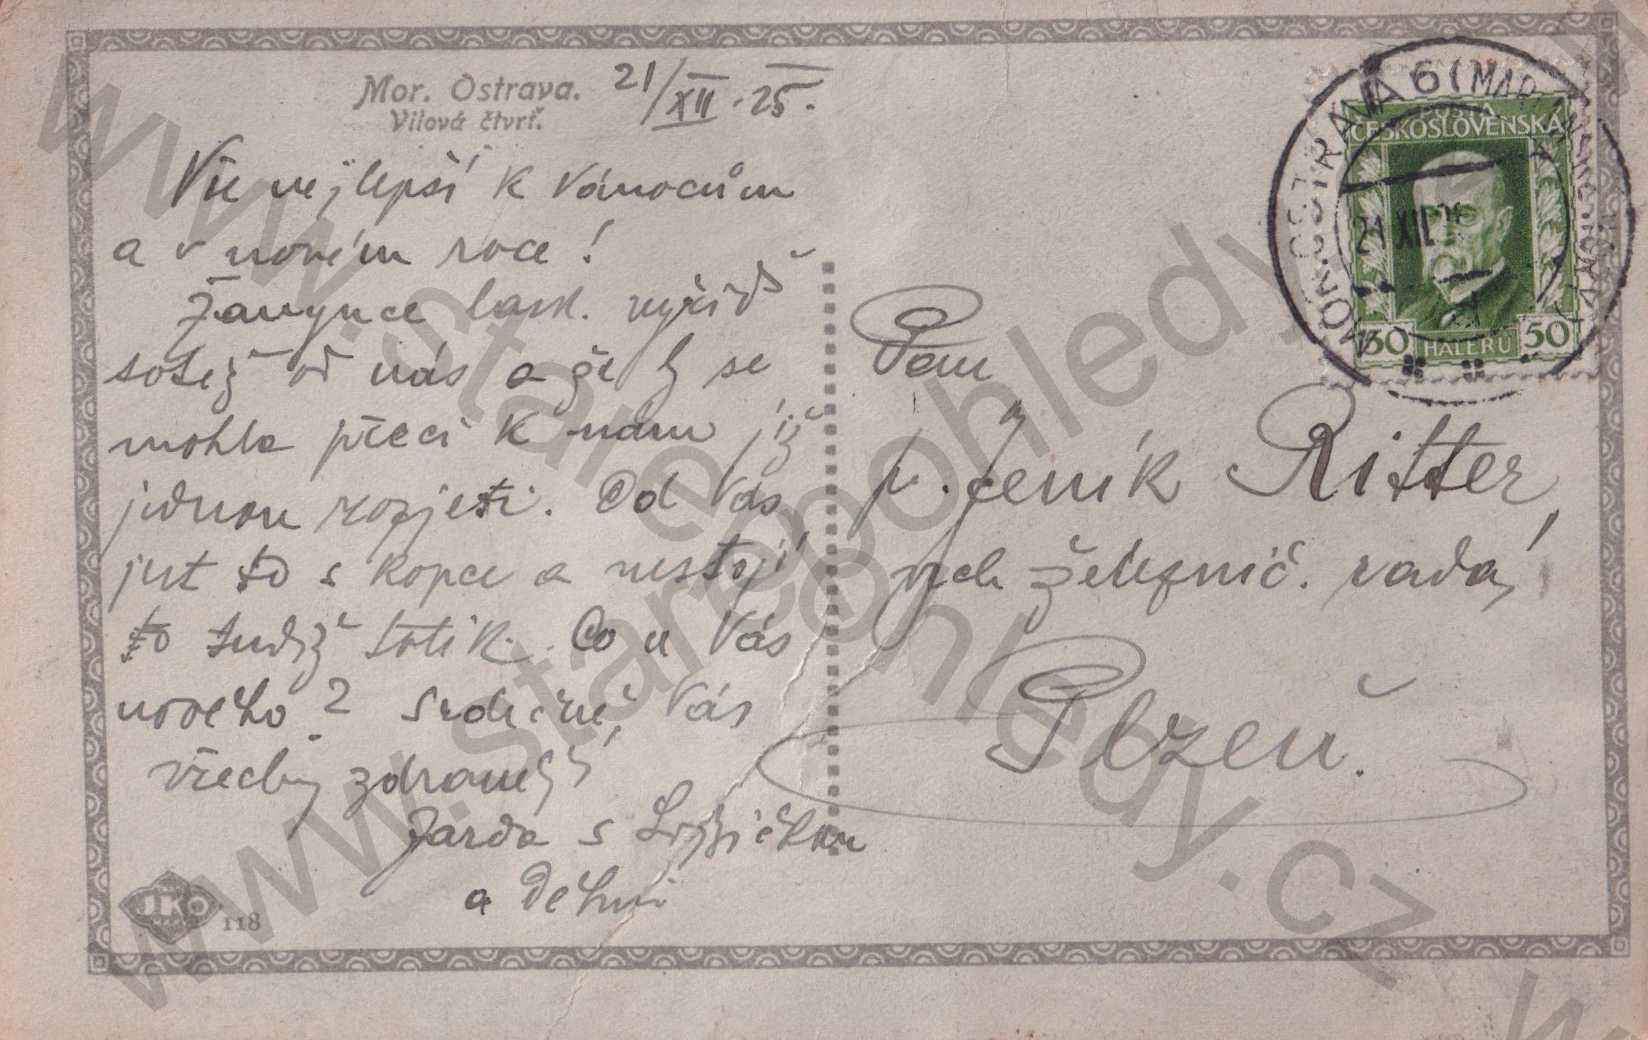 Mor. Ostrava. 21/XII. 25.
Vilová čtvrť.
Vše nejlepší k Vánocům
a v novém roce!
lask. vyřiď
totéž od nás a že by se
mohla přeci k nám již
jednou rozjeti. Od Vás
jest to s kopce a nestojí
to tudíž tolik. Co u Vás
nového? Srdečně Vás
všechny zdraví
Jarda s
a dětmi
JKO
118
Pan
p. Čeník Ritter,
vrch. železnič. rada,
Plzeň.
MOR. OSTRAVA 6
21 XII 25
POŠTA
ČESKOSLOVENSKÁ
50 HALÉŘŮ 50
www.starepohledy.cz
www.starepohledy.cz